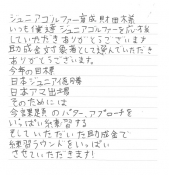 ジュニアゴルファー育成財団様
いつも僕達ジュニアゴルファーを応援
していただきありがとうございます
助成金対象者として選んでいただき
ありがとうございます。
今年の目標
日本ジュニア優勝
日本アマ出場
そのためには
今課題のパター、アプローチを
いっぱい練習する
そしていただいた助成金で
練習ラウンドをいっぱい
させていただきます!